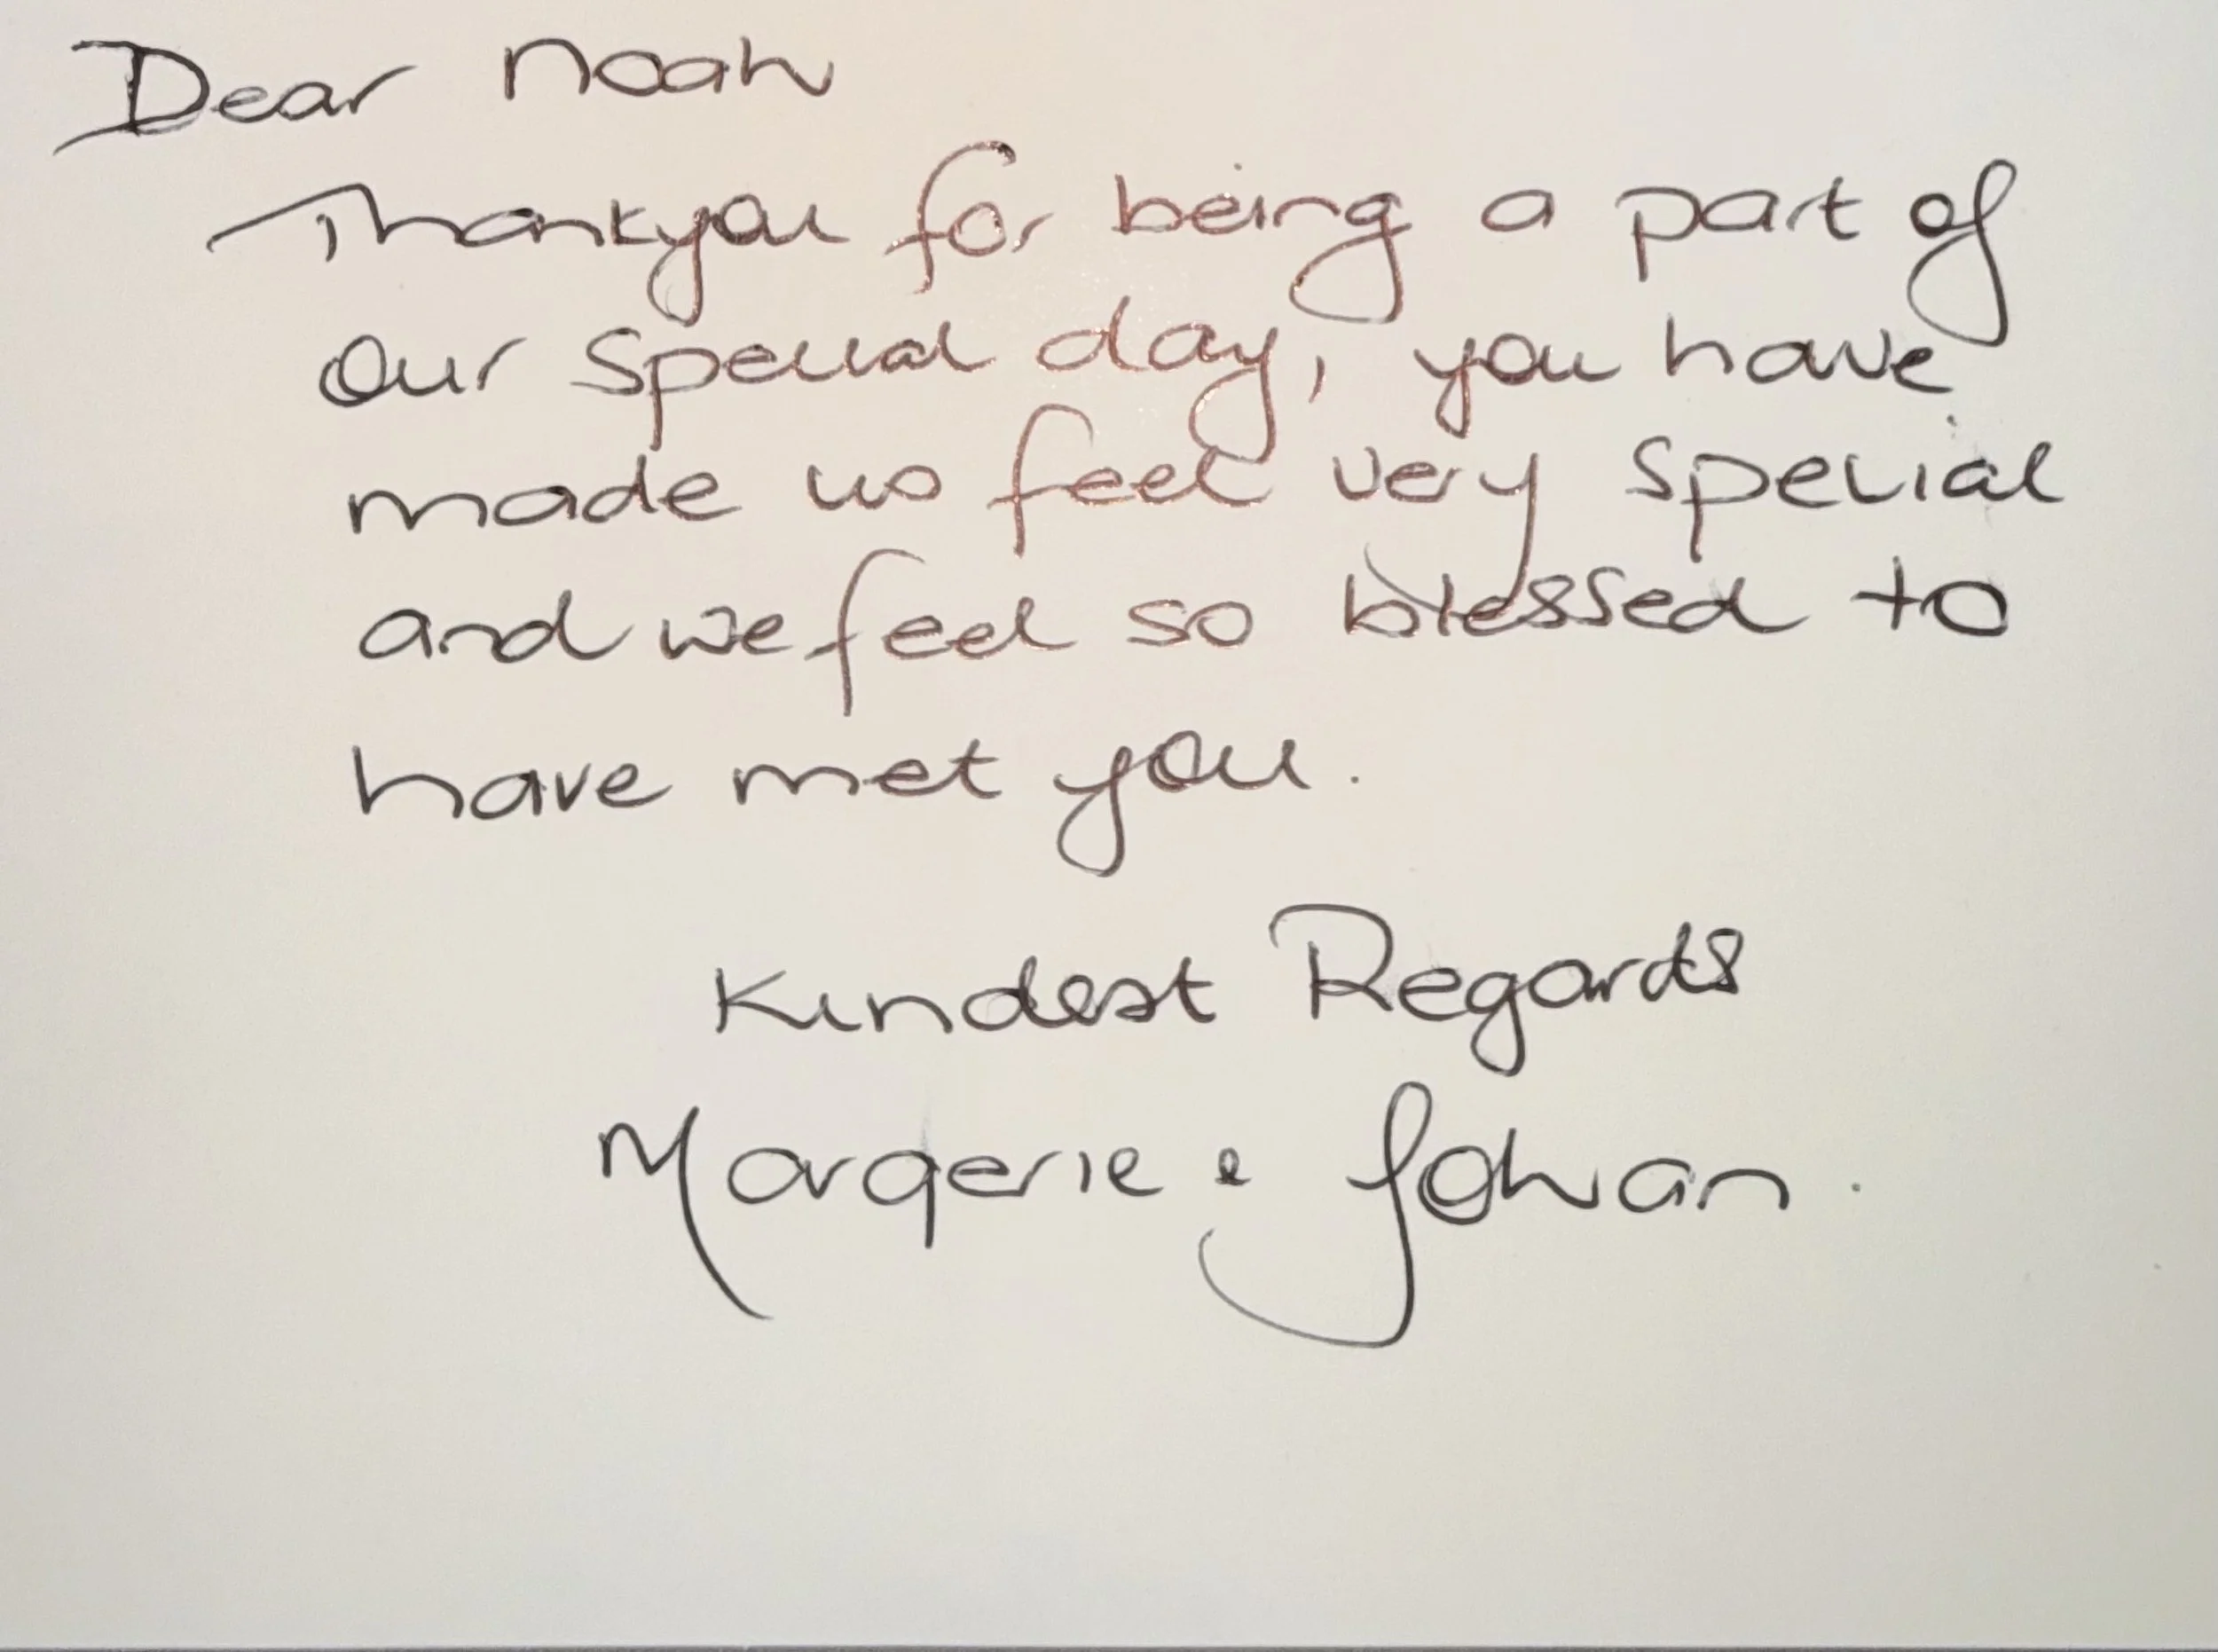 Dear Noah
Thankyou for being a part of
our special day, you have
made us feel very special
and we feel so blessed to
have met you.
Kindest Regards
Margerie & Johan.